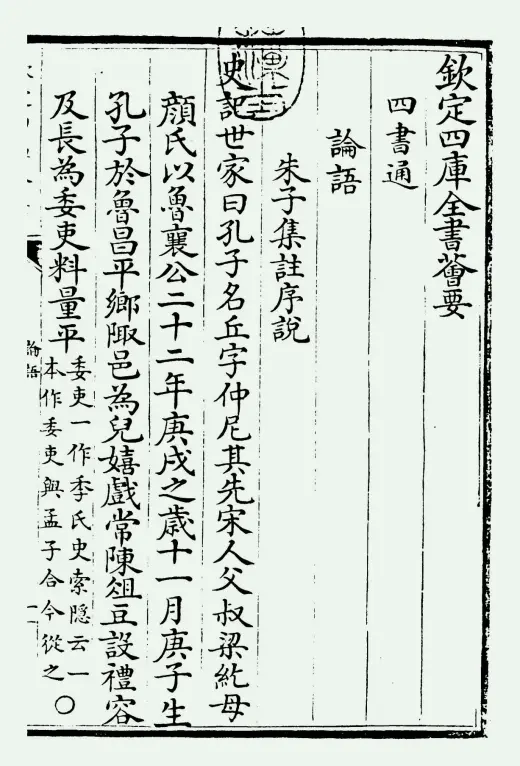 欽定四庫全書薈要
四書通
論語
朱子集註序說
史記世家曰孔子名丘字仲尼其先宋人父叔梁紇母
顏氏以魯襄公二十二年庚戌之歲十一月庚子生
孔子於魯昌平鄉陬邑為兒嬉戲常陳俎豆設禮容
及長為委吏料量平
委吏一作季氏史索隱云一
本作委吏與孟子合今從之〇
論語
一